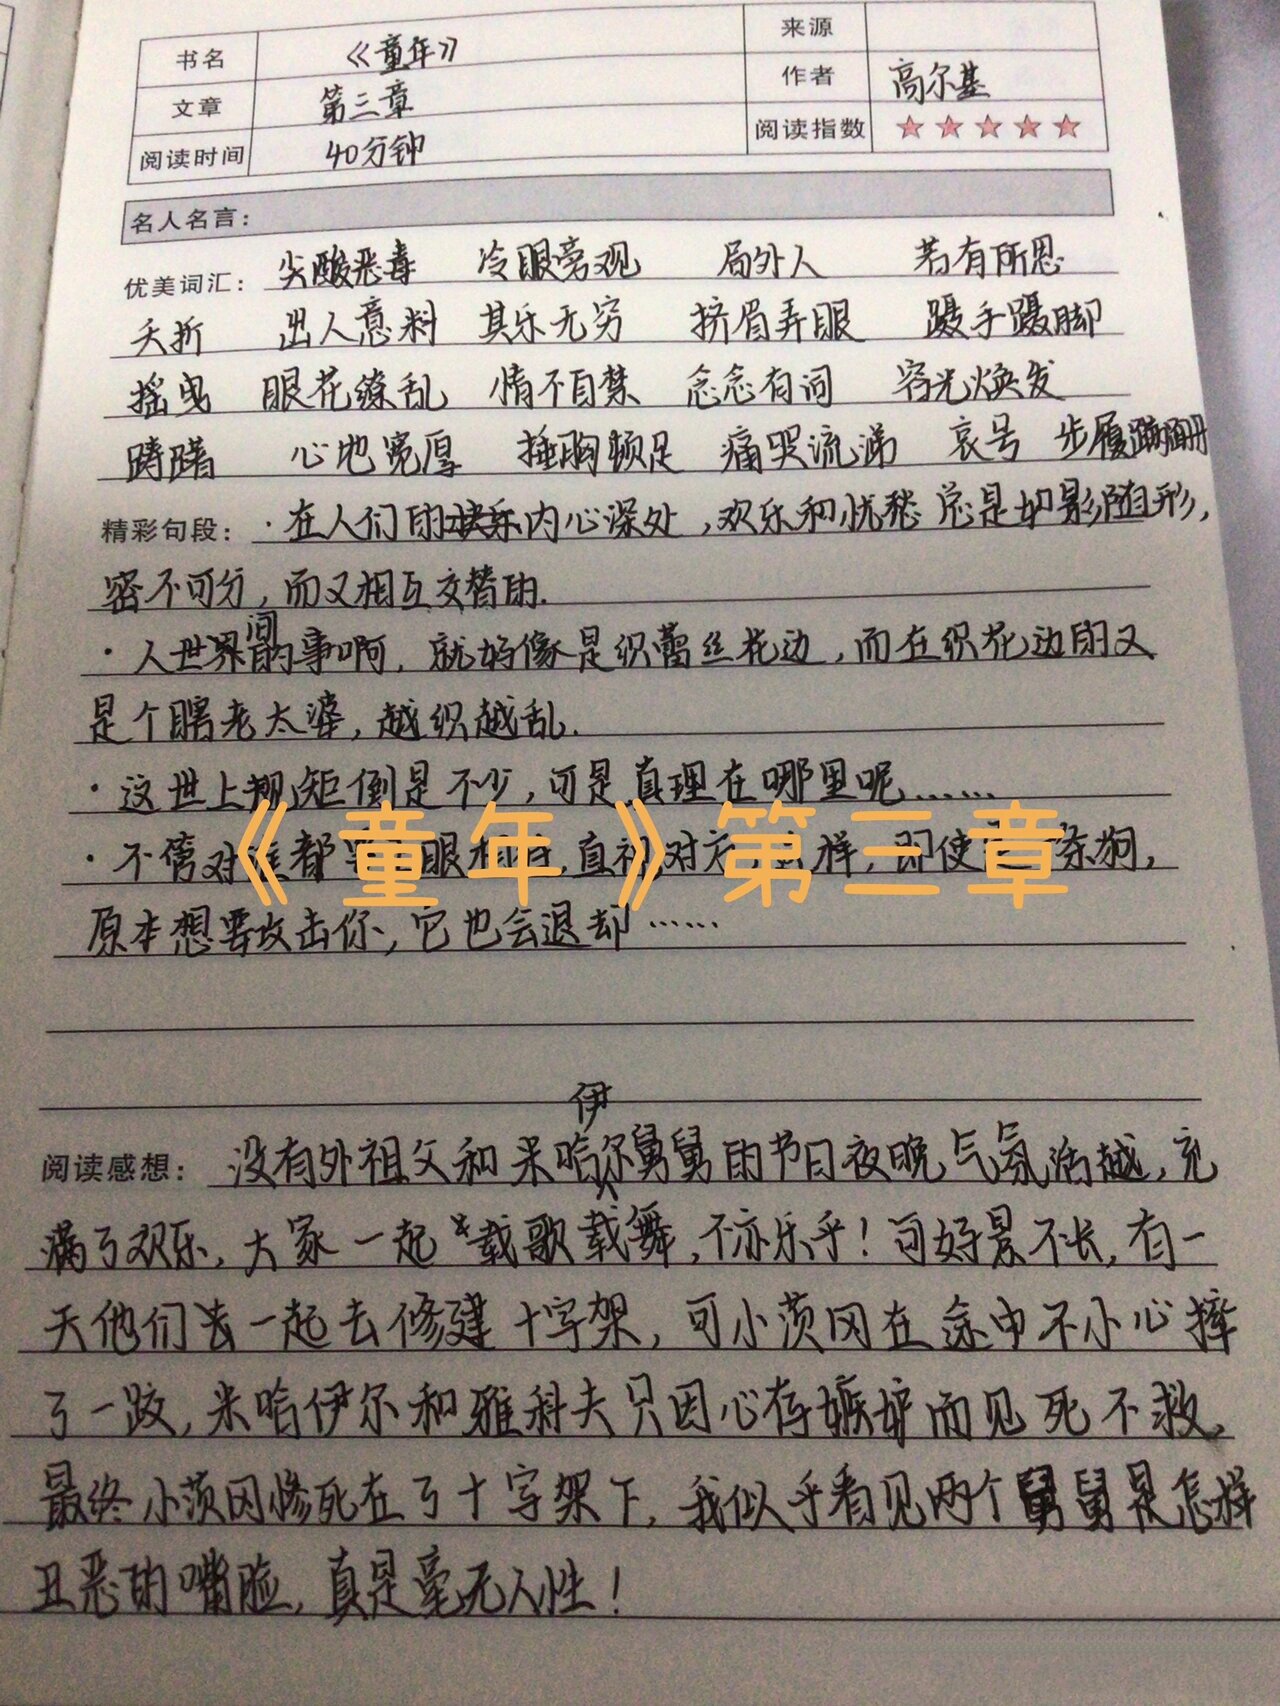 书名 《童年》 来源
文章 第三章 作者 高尔基
阅读时间 40分钟 阅读指数
名人名言：
优美词汇： 尖酸恶毒 冷眼旁观 局外人 若有所思
夭折 出人意料 其乐无穷 挤眉弄眼 蹑手蹑脚
摇曳 眼花缭乱 情不自禁 念念有词 容光焕发
踌躇 心地宽厚 捶胸顿足 痛哭流涕 哀号 步履蹒跚
精彩句段： ·在人们的内心深处，欢乐和忧愁总是如影随形，
密不可分，而又相互交替的.
·人世间的事啊，就好像是织蕾丝花边，而在织花边的又
是个瞎老太婆，越织越乱.
·这世上规矩倒是不少，可是真理在哪里呢……
·不管对谁都 眼相 ，直视对方 样，即使 条狗，
《童年》第三章
原本想要攻击你，它也会退却……
阅读感想： 没有外祖父和米哈伊尔舅舅的节日夜晚气氛活越，充
满了欢乐，大家一起载歌载舞，不亦乐乎！可好景不长，有一
天他们去一起去修建十字架，可小茨冈在途中不小心摔
了一跤，米哈伊尔和雅科夫只因心存嫉妒而见死不救，
最终小茨冈惨死在了十字架下，我似乎看见两个舅舅是怎样
丑恶的嘴脸，真是毫无人性！